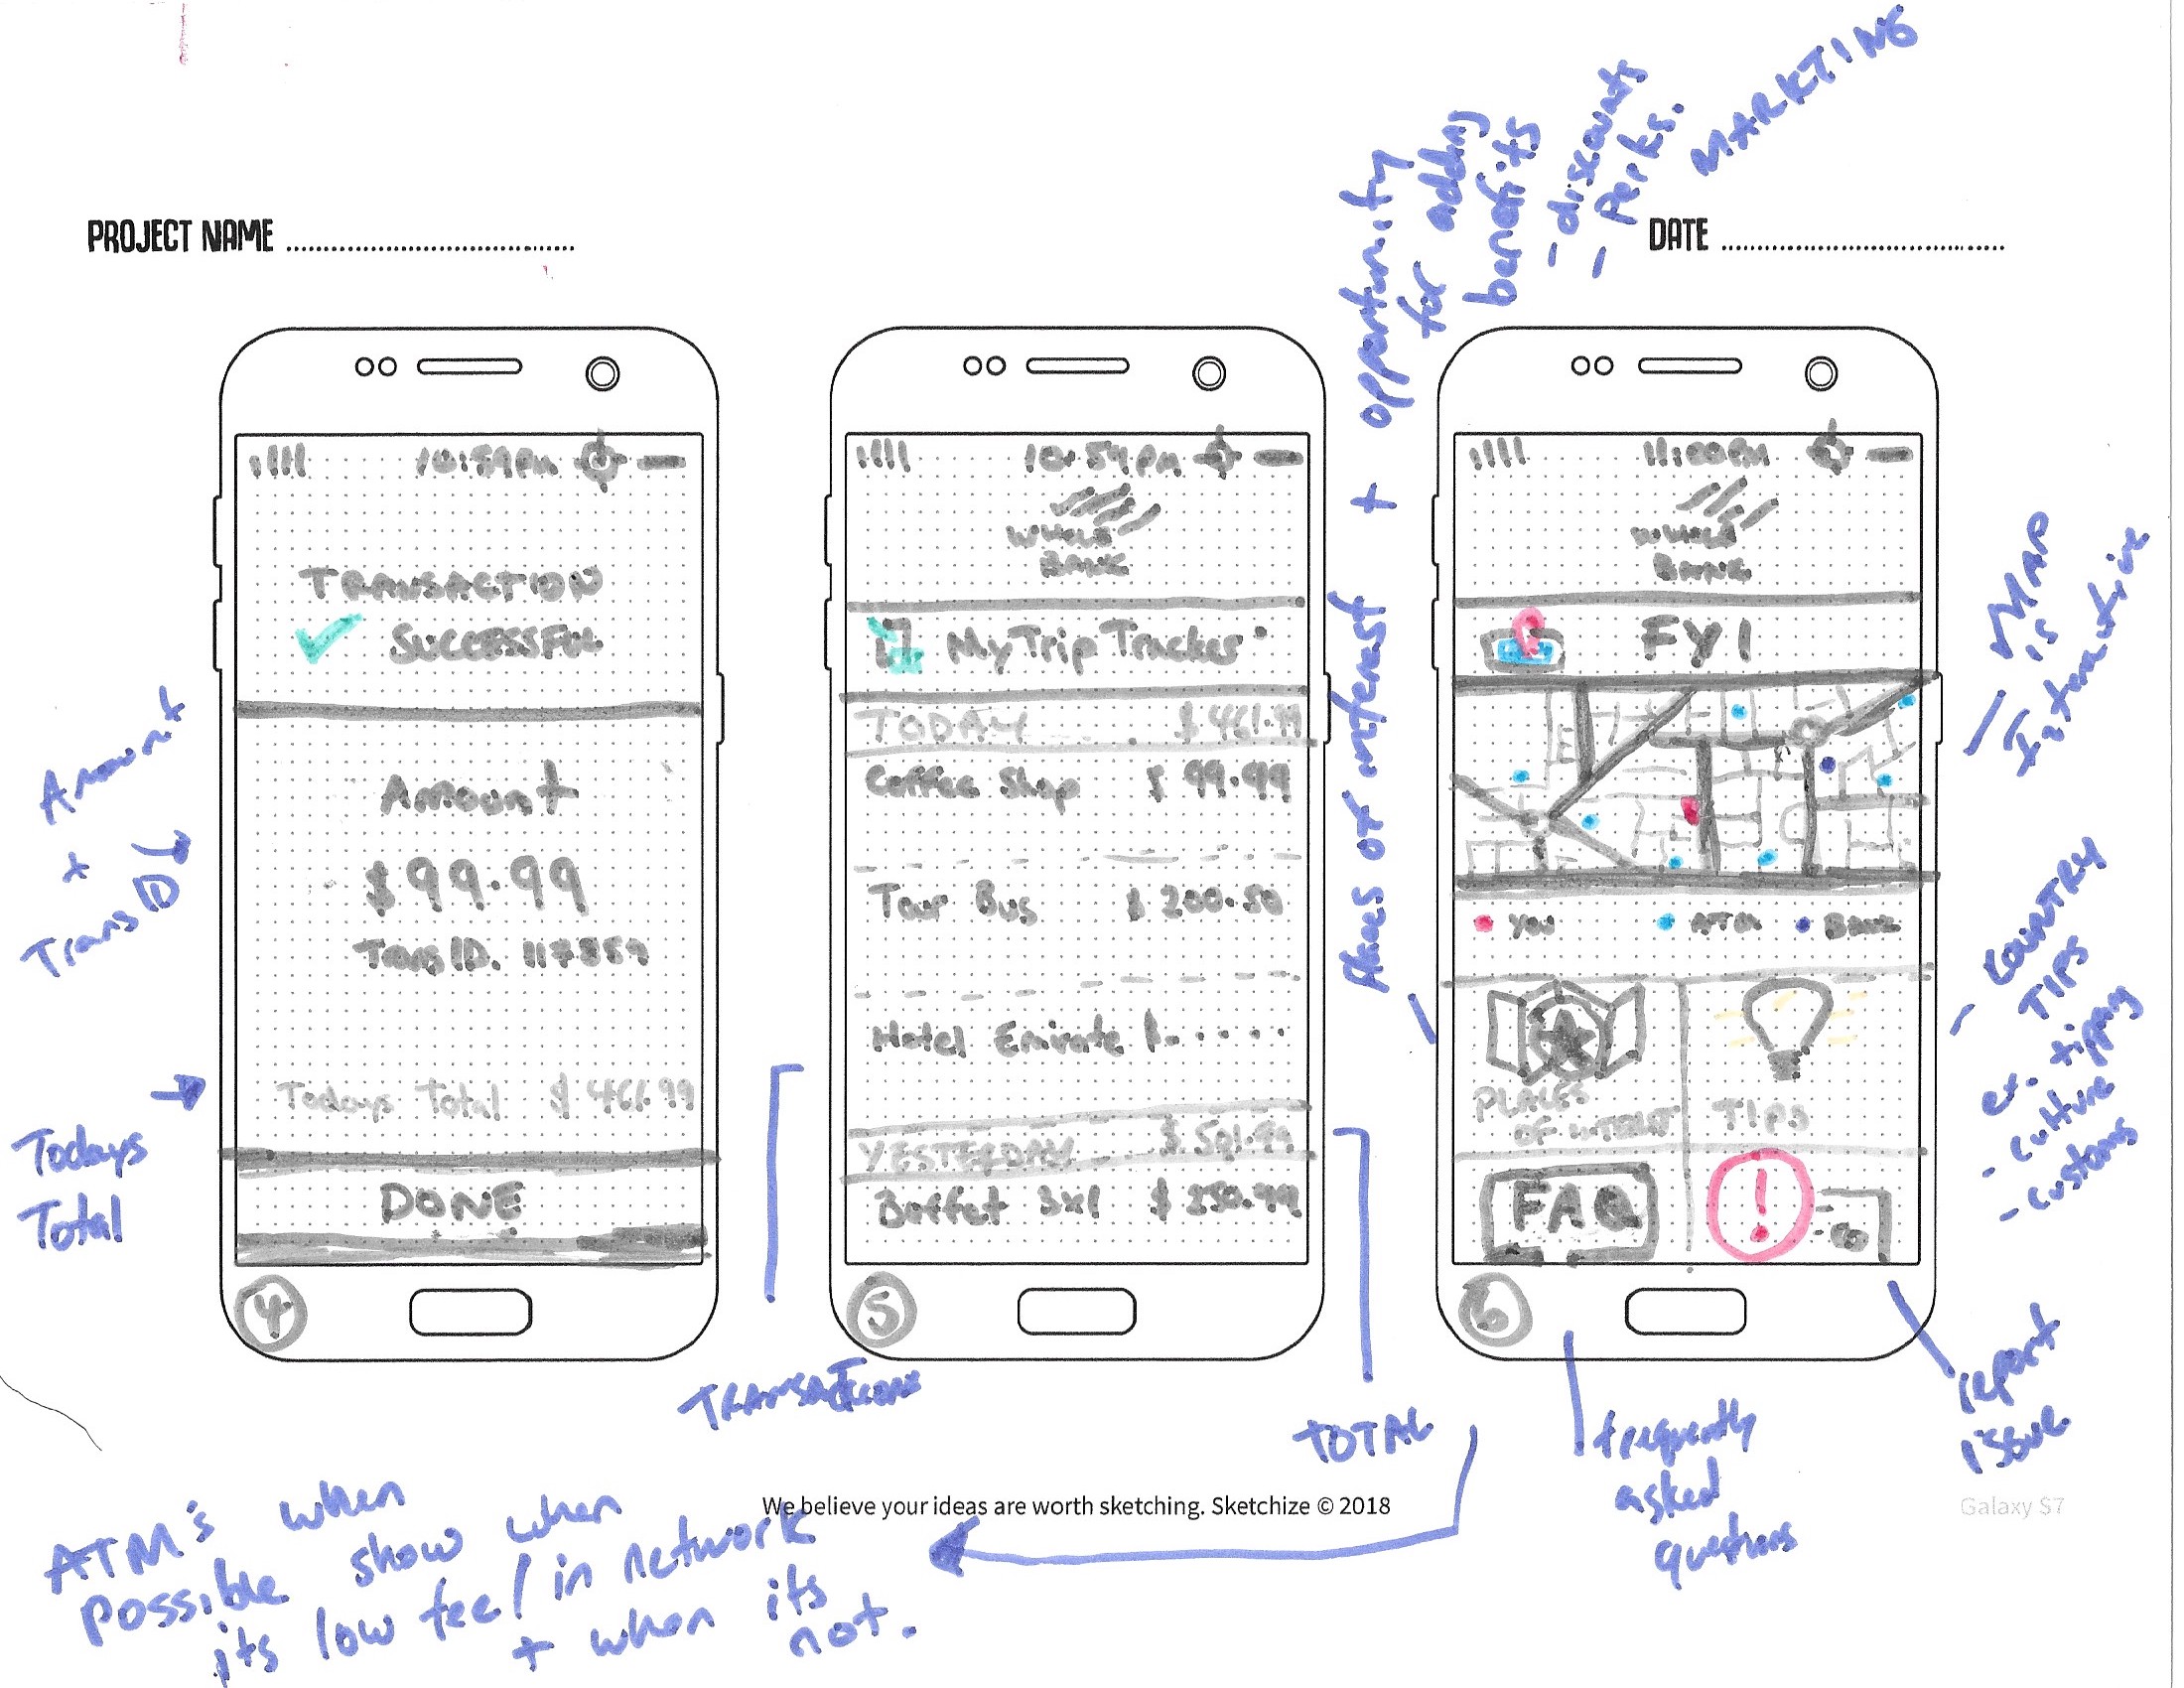 PROJECT NAME
DATE
+ opportunity
for adding
benefits
- discounts
- perks.
MARKTING
Places of interest
TRANSACTION
SUCCESSFUL
Amount
$99.99
Trans ID.
Todays Total $ 461.99
DONE
4
Amount
+
Trans ID
Todays
Total
10:54PM
BANK
MyTripTracker
TODAY $ 461.99
Coffee Shop $ 99.99
Tour Bus $ 200.50
Hotel Emirate
YESTERDAY $ 501.99
Buffet 3x1 $
5
TRANSACTIONS
TOTAL
11:00PM
BANK
FYI
YOU ATM BANK
PLACES
OF INTREST
TIPS
FAQ
!
6
MAP
is
Interactive
- COUNTRY
TIPS
ex. tipping
- culture
- customs
report
issue
frequently
asked
questions
We believe your ideas are worth sketching. Sketchize © 2018
Galaxy S7
ATM's when
possible show when
its low fee/in network
+ when its
not.